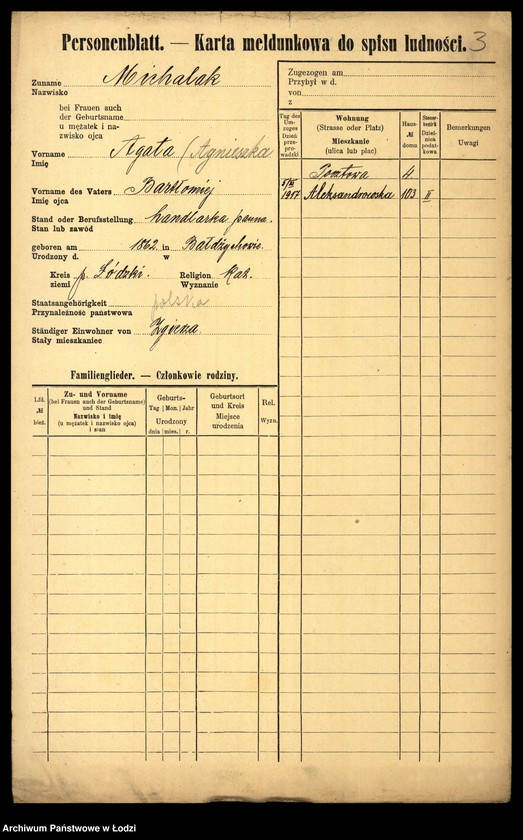 Personenblatt. — Karta meldunkowa do spisu ludności. 3
Zuname Michalak
Nazwisko
bei Frauen auch
der Geburtsname
u mężatek i na-
zwisko ojca
Vorname Agata (Agnieszka
Imię
Vorname des Vaters Bartłomiej
Imię ojca
Stand oder Berufsstellung handlarka panna.
Stan lub zawód
geboren am 1862 in Bałdrzychowie
Urodzony d. w
Kreis p. Łódzki. Religion Kat.
ziemi Wyznanie
Staatsangehörigkeit polska
Przynależność państwowa
Ständiger Einwohner von Zgierza
Stały mieszkaniec
Familienglieder. — Członkowie rodziny.
Lfd. № bież.
Zu- und Vorname
(bei Frauen auch der Geburtsname)
und Stand
Nazwisko i imię
(u mężatek i nazwisko ojca)
i stan
Geburts-
Tag | Mon. | Jahr
Urodzony
dnia | mies. | r.
Geburtsort
und Kreis
Miejsce
urodzenia
Rel.
Wyzn.
Zugezogen am
Przybył w d.
von
z
Tag des
Um-
zuges
Dzień
prze-
prowadzki
Wohnung
(Strasse oder Platz)
Mieszkanie
(ulica lub plac)
Haus-
№
domu
Steuer-
bezirk
Dziel-
nica
podat-
kowa
Bemerkungen
Uwagi
4
1917 Aleksandrowska 103 II
Archiwum Państwowe w Łodzi